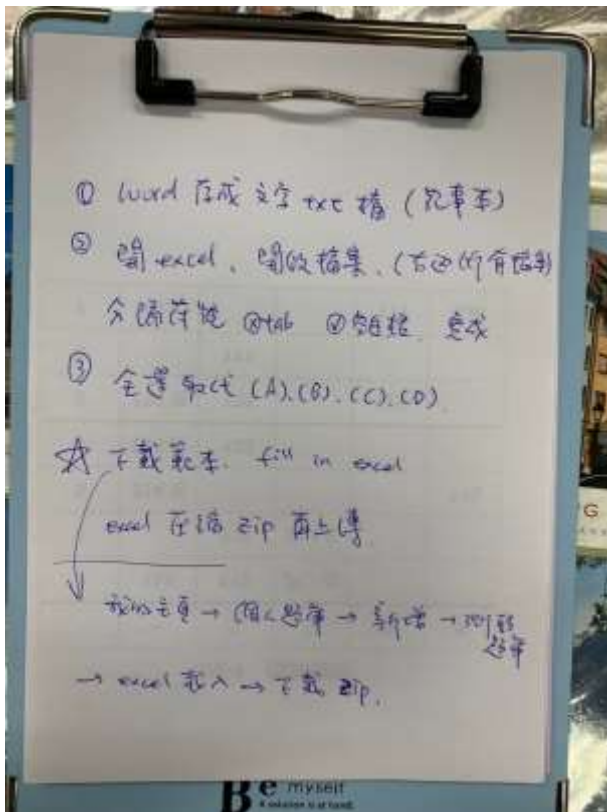 ① Word 存成文字 txt 檔 (記事本)
② 開 excel、開啟檔案、(右邊所有檔案)
分隔符號 ☑tab ☑ 完成
③ 全選取代 (A).(B).(C).(D)
☆ 下載範本. fill in excel
excel 壓縮 zip 再上傳
我的主頁 → 個人題庫 → 新增 → 測驗
題庫
→ excel 載入 → 下載 zip.
G
Be myself
A solution is at hand.